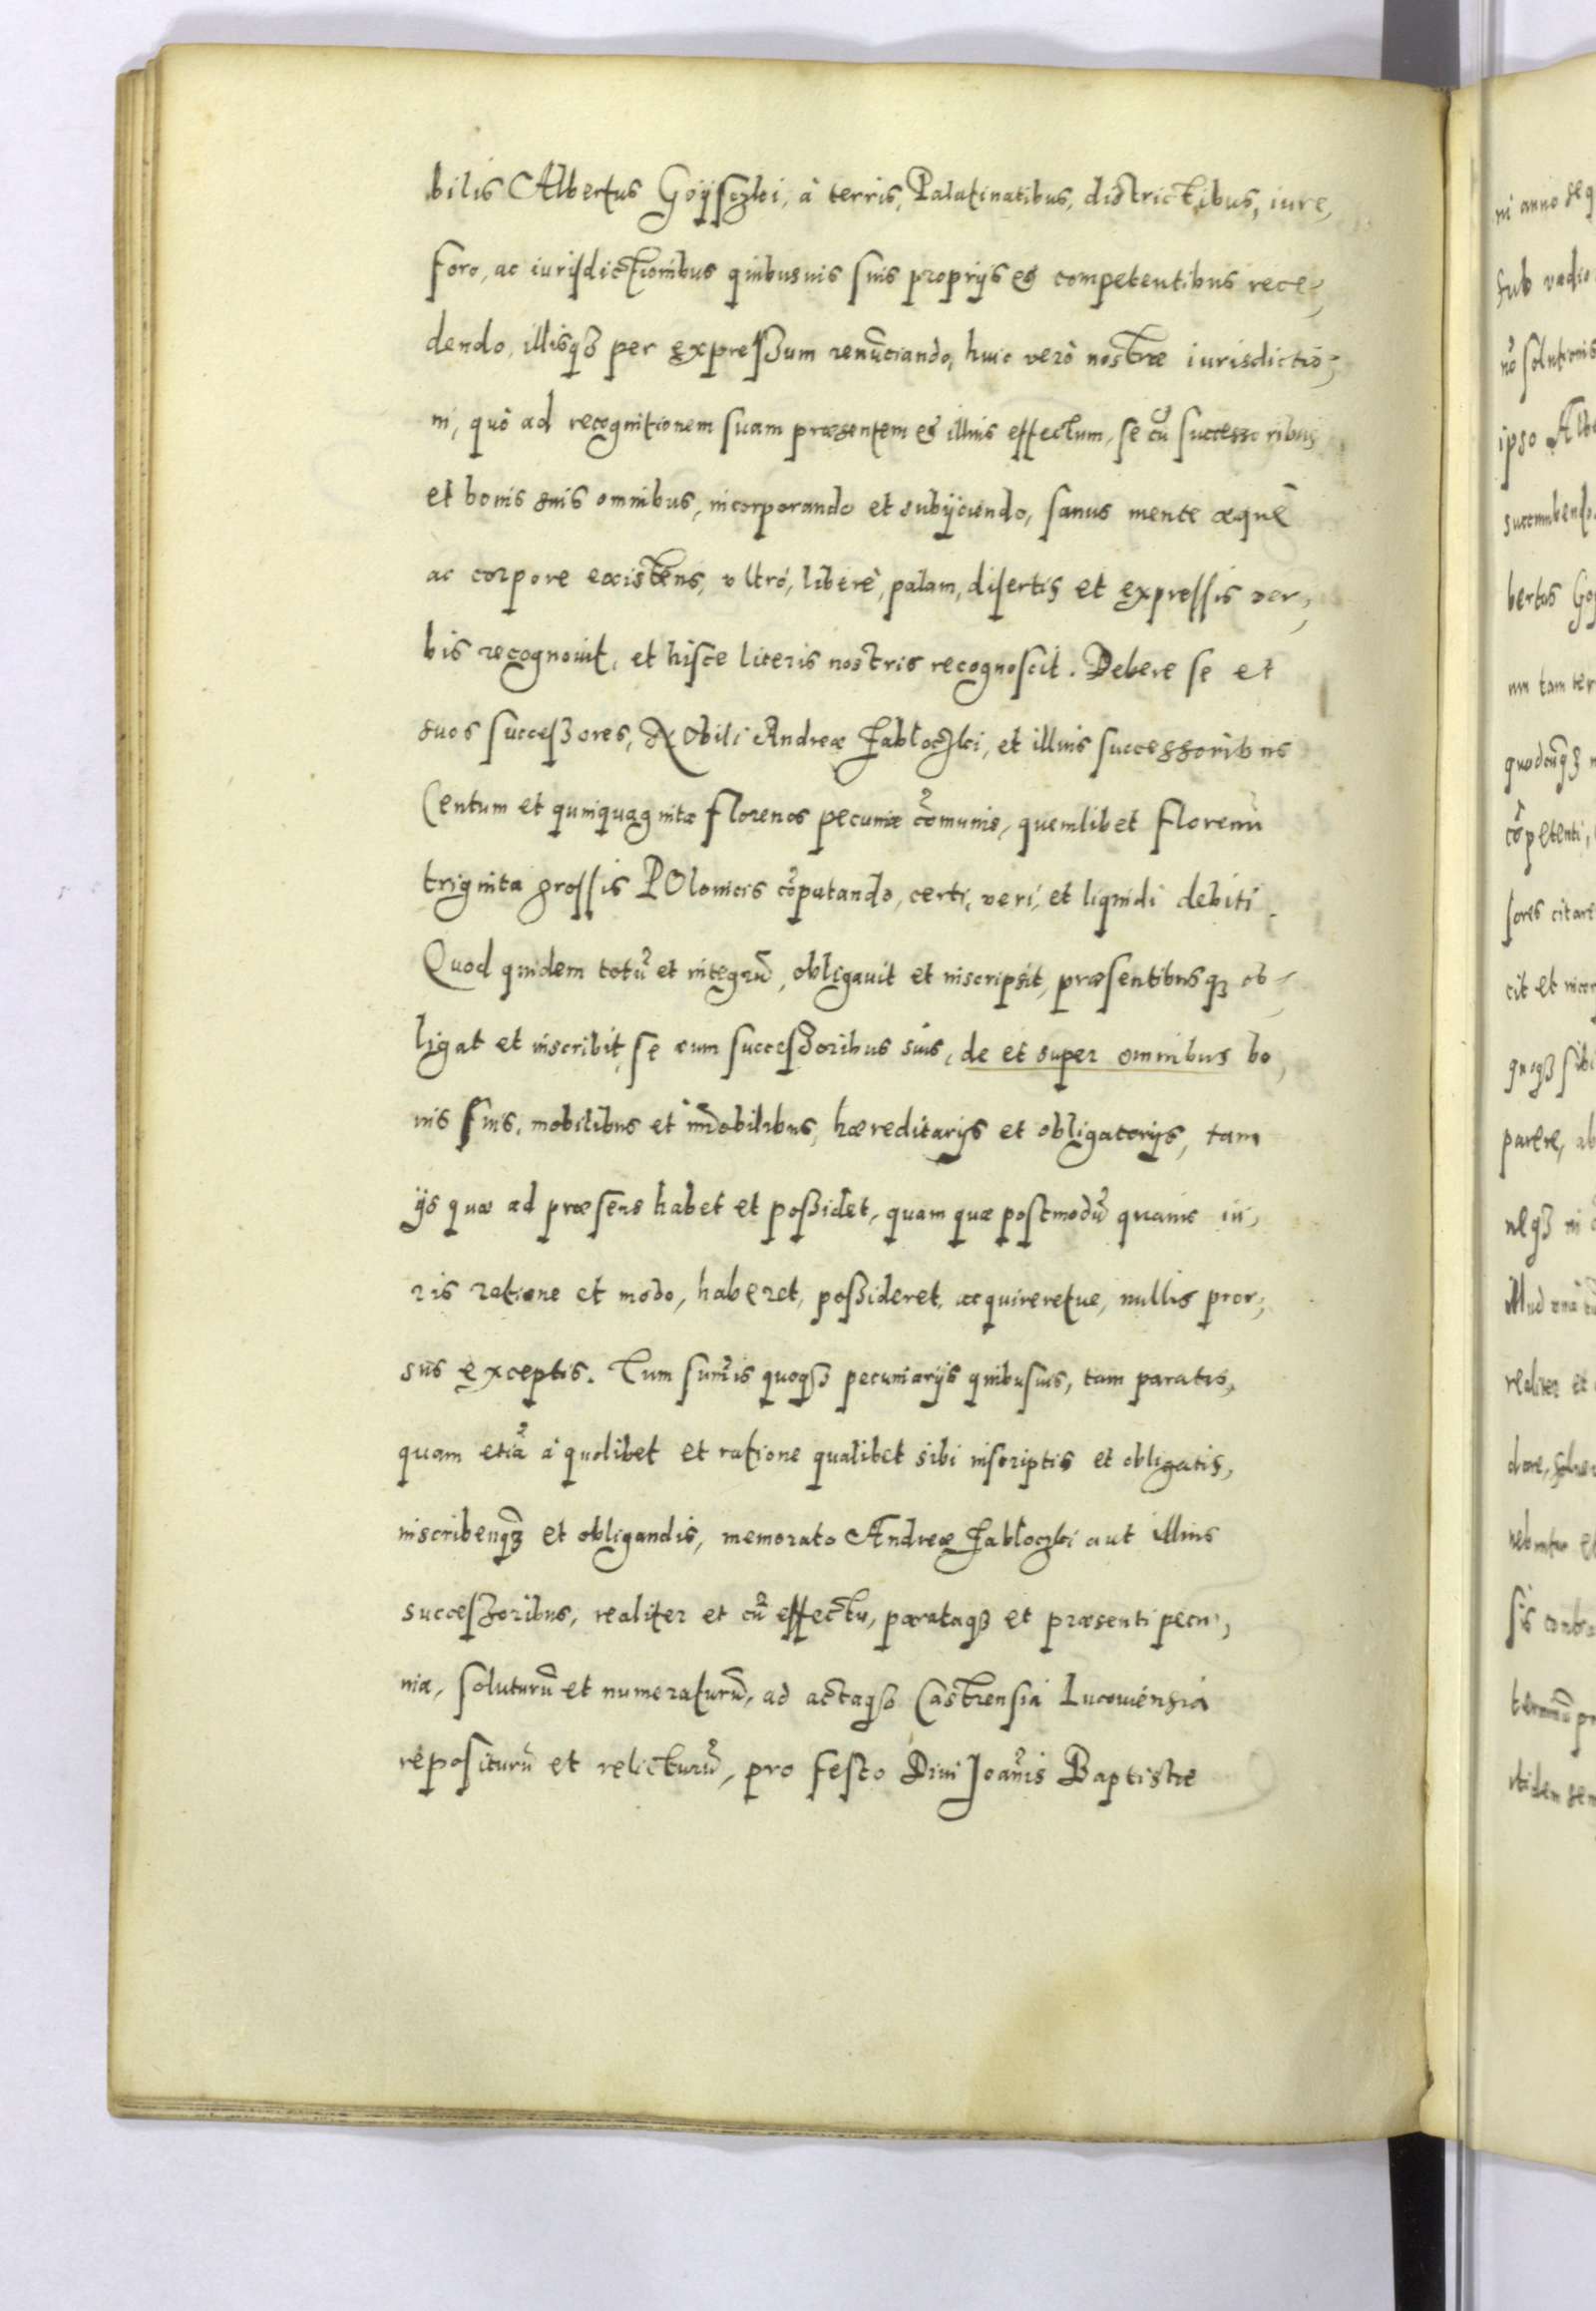 bilis Albertus Goÿſczki, à terris, Palatinatibus, districtibus, iure,
foro, ac iurisdictionibus quibusuis suis proprijs et competentibus rece-
dendo, illisqȝ per expreſsum renūciando, huic verò nostræ iurisdictio-
ni, quò ad recognitionem suam præsentem et illius effectum, se cū successoribus
et bonis suis omnibus, incorporando et subijciendo, sanus mente æquè
ac corpore existens, vltró, liberè, palam, disertis et expressis ver,
bis recognouit, et hisce literis nostris recognoscit. Debere se et
suos succeſsores, Nobili Andreæ Jabłoczki, et illius successoribus
Centum et quinquaginta florenos pecuniæ cōmunis, quemlibet florenū
triginta grossis POlonicis cōputando, certi, veri, et liquidi debiti.
Quod quidem totū et integrū, obligauit et inscripsit, præsentibusqȝ ob-
ligat et inscribit, se cum succeſsoribus suis, de et super omnibus bo,
nis suis, mobilibus et im̄obilibus, hæreditarijs et obligatorijs, tam
ijs quæ ad præsens habet et poſsidet, quam quæ postmodū quauis iu,
ris ratione et modo, haberet, poſsideret, acquireretue, nullis pror,
sus exceptis. Tum sum̄is quoqȝ pecuniarijs quibusuis, tam paratis,
quam etiā à quolibet et ratione qualibet sibi inscriptis et obligatis,
inscribenqȝ et obligandis, memorato Andreæ Jabłoczki aut illius
succeſsoribus, realiter et cū effectu, parataqȝ et præsenti pecu,
nia, soluturū et numeraturū, ad actaqȝ Castrensia Lucouiensia
repositurū et relicturū, pro festo Diui Joan̄is Baptistæ
ni anno seq
sub vadio
nō solutionis
ipso Albe
succumbendo
bertus Goy
quodcūqȝ
cōpetenti,
sores citare
cit et incor
parere, ab
neqȝ in
realiter et